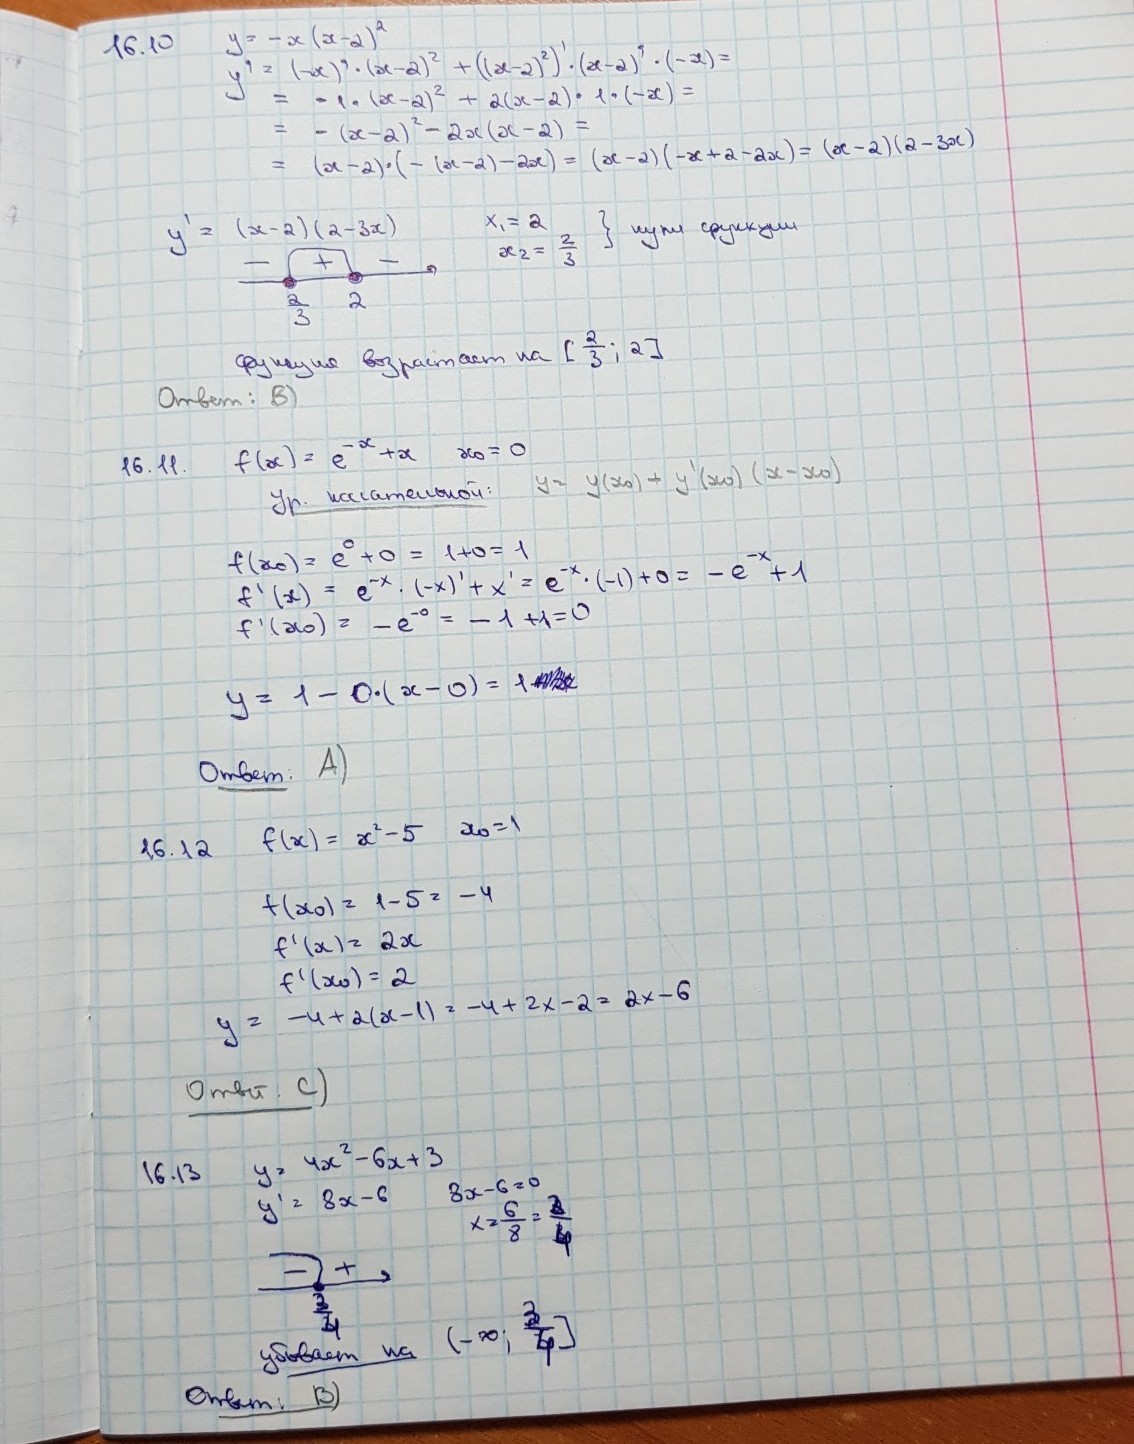 16.10 y = -x(x-2)²
y' = (-x)'·(x-2)² + ((x-2)²)'·(x-2)'·(-x) =
= -1·(x-2)² + 2(x-2)·1·(-x) =
= -(x-2)² - 2x(x-2) =
= (x-2)·(-(x-2)-2x) = (x-2)(-x+2-2x) = (x-2)(2-3x)
y' = (x-2)(2-3x) x₁=2 x₂=2/3 } нули функции
- + -
2/3 2
функция возрастает на [2/3; 2]
Ответ: B)
16.11. f(x) = e⁻ˣ+x x₀=0
Ур. касательной: y = y(x₀) + y'(x₀)(x-x₀)
f(x₀) = e⁰+0 = 1+0 = 1
f'(x) = e⁻ˣ·(-x)' + x' = e⁻ˣ·(-1)+0 = -e⁻ˣ+1
f'(x₀) = -e⁻⁰ = -1+1=0
y = 1 - 0·(x-0) = 1
Ответ: A)
16.12 f(x) = x²-5 x₀=1
f(x₀) = 1-5 = -4
f'(x) = 2x
f'(x₀) = 2
y = -4+2(x-1) = -4+2x-2 = 2x-6
Ответ: C)
16.13 y = 4x²-6x+3
y' = 8x-6 8x-6=0
x = 6/8 = 3/4
- +
3/4
убывает на (-∞; 3/4]
Ответ: B)